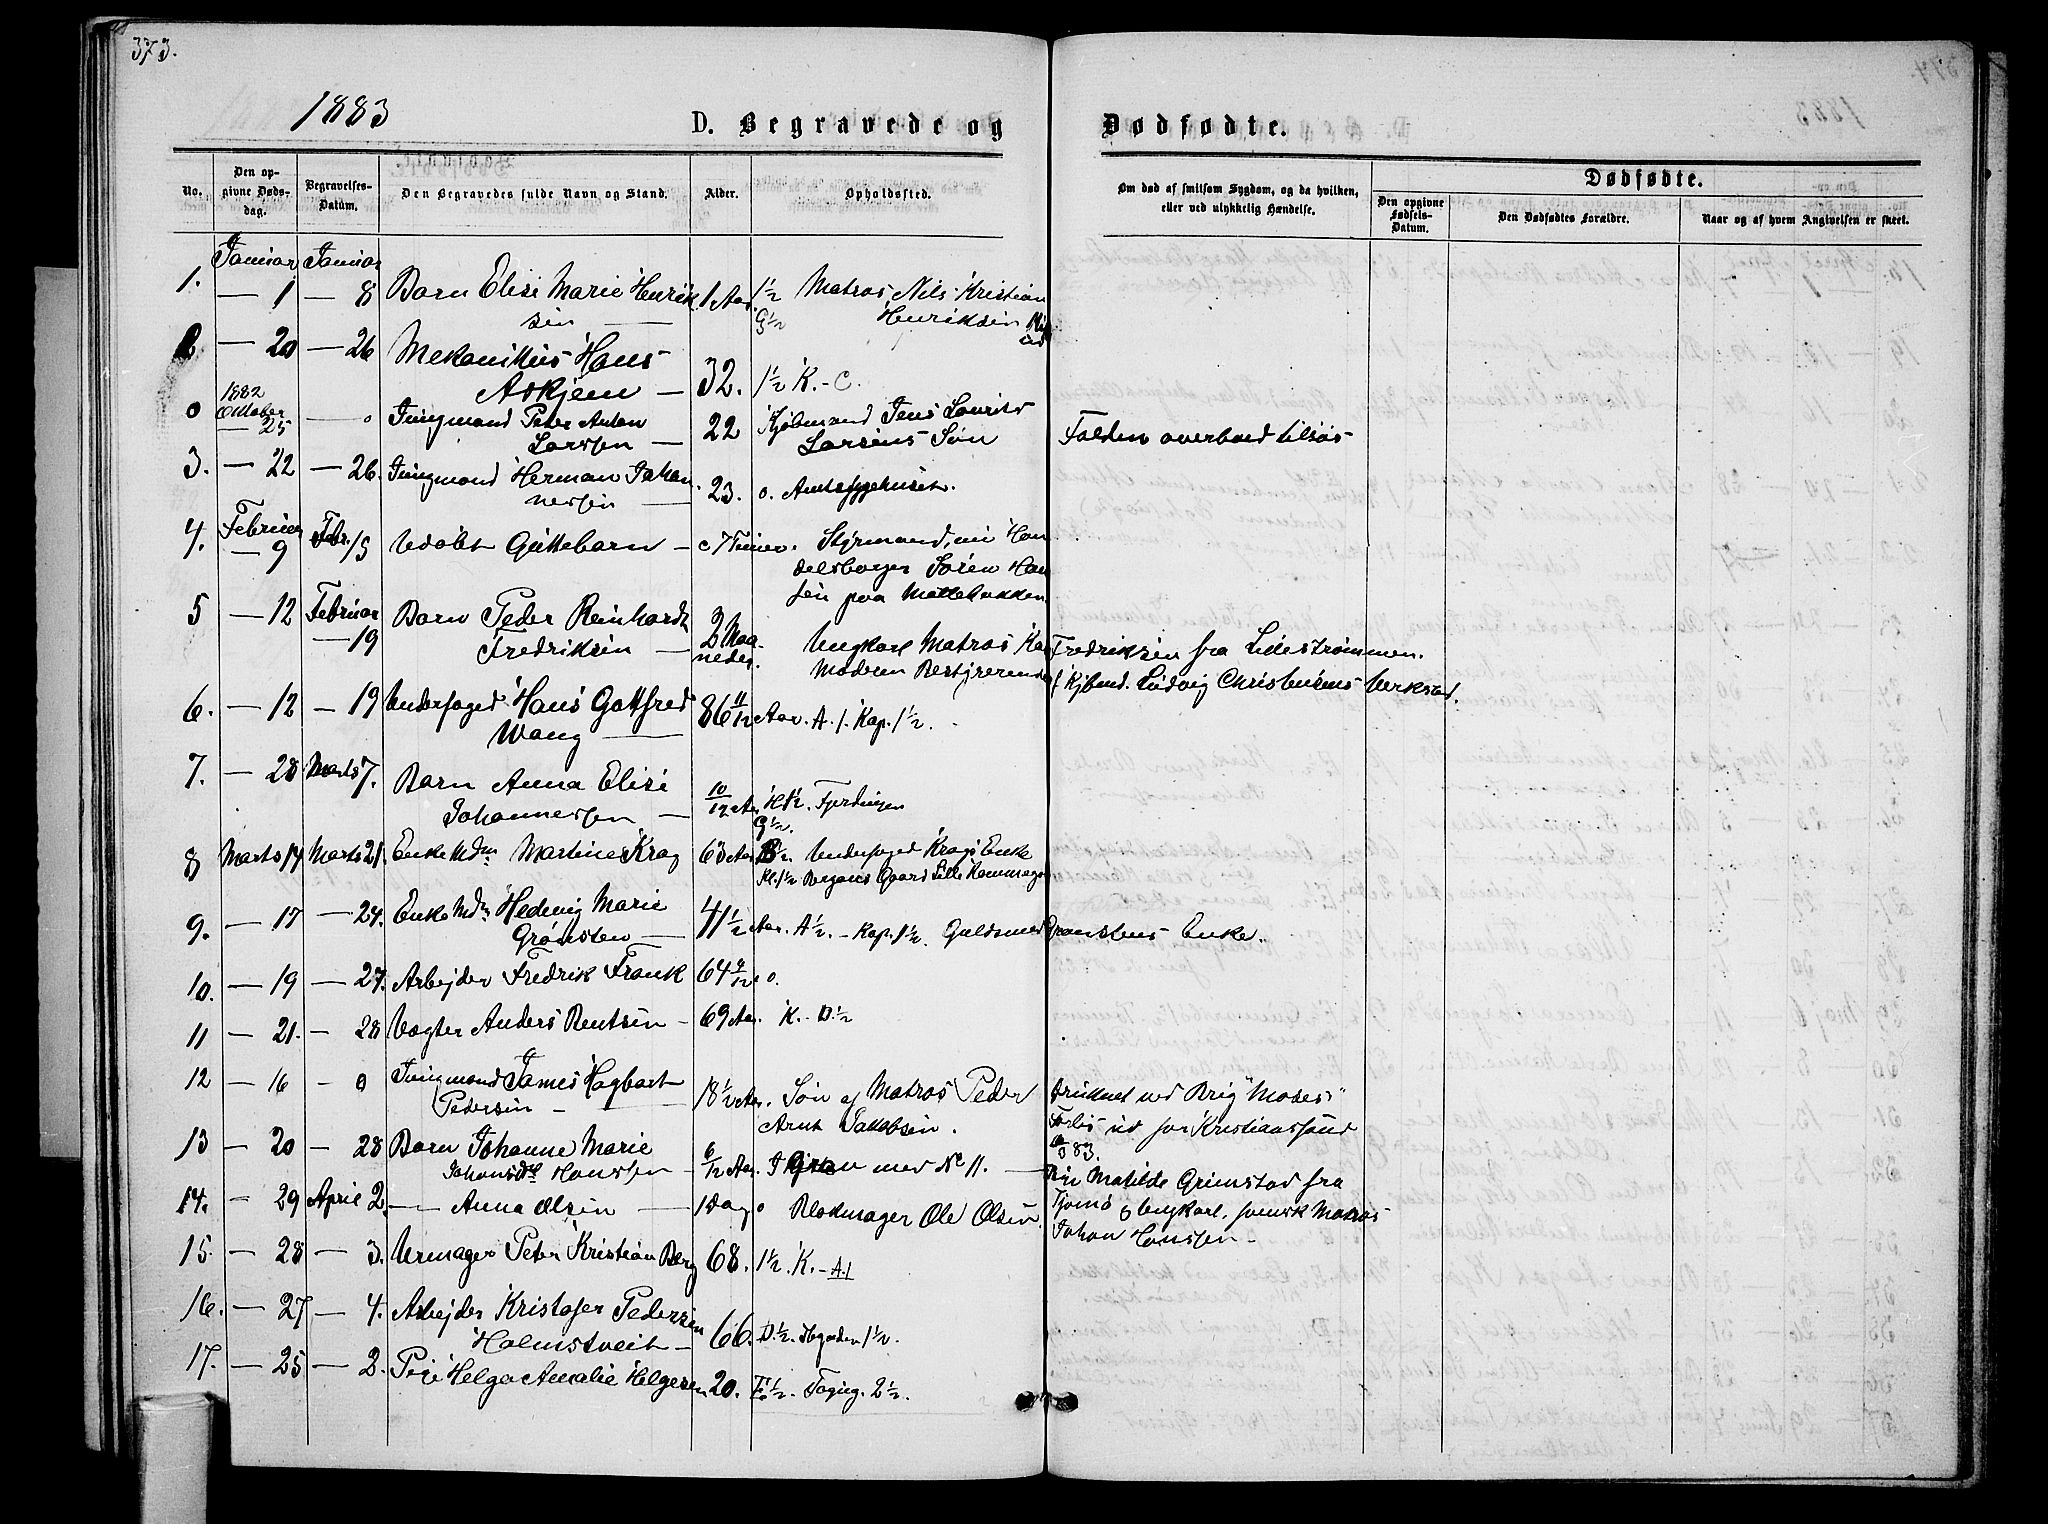 373.
1883 D. Begravede og Dødfødte.
No. Den opgivne Dødsdag. Begravelses-Datum. Den Begravedes fulde Navn og Stand. Alder. Opholdssted. Om død af smitsom Sygdom, og da hvilken, eller ved ulykkelig Hændelse.
Dødfødte.
Den opgivne Fødsels-Datum. Den Dødfødtes Forældre. Naar og af hvem Angivelsen er skeet.
Januar Januar
1. — 1 — 8 Barn Elise Marie Henrik 1 Aar 1½ Matros Nils Kristian
sen — G½ Henriksen
2 — 20 — 26 Mekanikus Hans
Askjem — 32. 1½ K. - C.
1882
Oktober
0 — 25 — 0 Jungmand Peter Anton 22 Kjøbmand Jens Laurits
Larssen — Larsens Søn Falden overbord tilsøs
3. — 22 — 26. Jungmand Herman Johan
nessen — 23. o. Amtssygehuset.
Februar Febr.
4. — 9 15 Udøbt Guttebarn — c 7 Timer. Styrmand, nu Han
delsborger Søren Han
sen paa Møllebakken
5 — 12 Februar — 19 Barn Peder Reinhardt
Fredriksen — 2 Maaneder. Ungkarl Matros Fredriksen fra Lillestrømmen.
Moderen Bestyrerende f Kjbmd. Ludvig Christensens Verksted.
6. — 12 — 19 Undersaged Hans Gotfred
Wang — 86 11/12 Aar. A. 1. Kap. 1½.
7. — 28 Marts 7. Barn Anna Elise
Johannessen — 10/12 Aar H½. Fjerdingen
G½.
8 Marts 14 Marts 21. Enke Mdm Martine Krag 63 Aar Undersaged Krags Enke
Kl. 1½ Bergans Gaard Lille
9. — 17 — 24. Enke Mdm Hedevig Marie
Grønsten — 41½ Aar. A½. - Kap. 1½. Guldsmed Grønstens Enke.
10. — 19 — 27. Arbejder Fredrik Frank 64 9/12 o.
11 — 21. — 28 Vægter Anders Bentsen — 69 Aar. K. - D.½
12 — 16 — 0 Jungmand James Hagbart
Pedersen — 18½ Aar. Søn af Matros Peder druknet ved Brig "Moses"
Arnt Jakobsen. Forlis ud for Kristianssund
83.
13 — 20 — 28 Barn Johanne Marie
Johansdtr Hanssen — 6/12 Aar. I Grav med No 11. — Matilde Grimstad fra
14. — 29 April 2. — Anna Olsen — 1 Dag o Blokmager Ole Olsen. Tjømø og Ungkarl, svensk Matros
Johan Hanssen —
15 — 28 — 3. Urmager Peter Kristian Berg 68. 1½. K. - A.1
16. — 27 — 4. Arbejder Kristofer Pedersen
Holmstveit — 66. D.½. 1½.
17. — 25 — 2. Pige Helga Amalie Helgesen 20. F½. 2½.